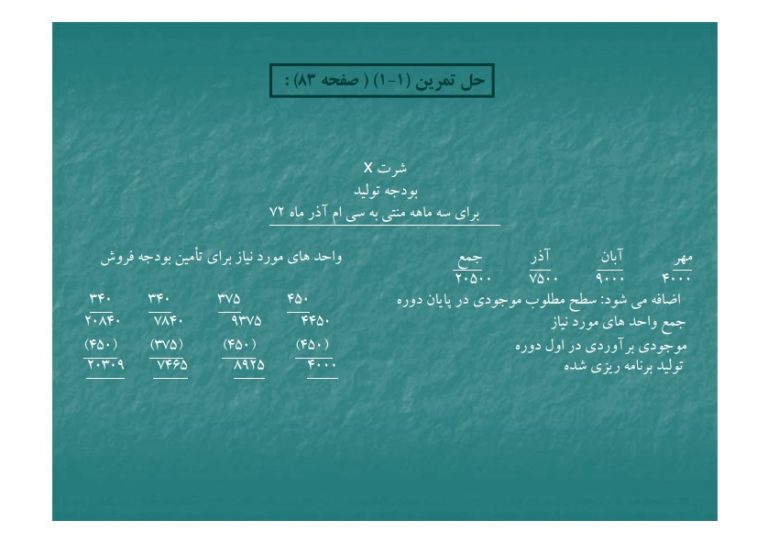 حل تمرین (۱-۱) ( صفحه ۸۳) :
شرت X
بودجه تولید
برای سه ماهه منتی به سی ام آذر ماه ۷۲
مهر آبان آذر جمع واحد های مورد نیاز برای تأمین بودجه فروش
۴۰۰۰ ۹۰۰۰ ۷۵۰۰ ۲۰۵۰۰
اضافه می شود: سطح مطلوب موجودی در پایان دوره ۴۵۰ ۳۷۵ ۳۴۰ ۳۴۰
جمع واحد های مورد نیاز ۴۴۵۰ ۹۳۷۵ ۷۸۴۰ ۲۰۸۴۰
موجودی برآوردی در اول دوره (۴۵۰) (۴۵۰) (۳۷۵) (۴۵۰)
تولید برنامه ریزی شده ۴۰۰۰ ۸۹۲۵ ۷۴۶۵ ۲۰۳۰۹